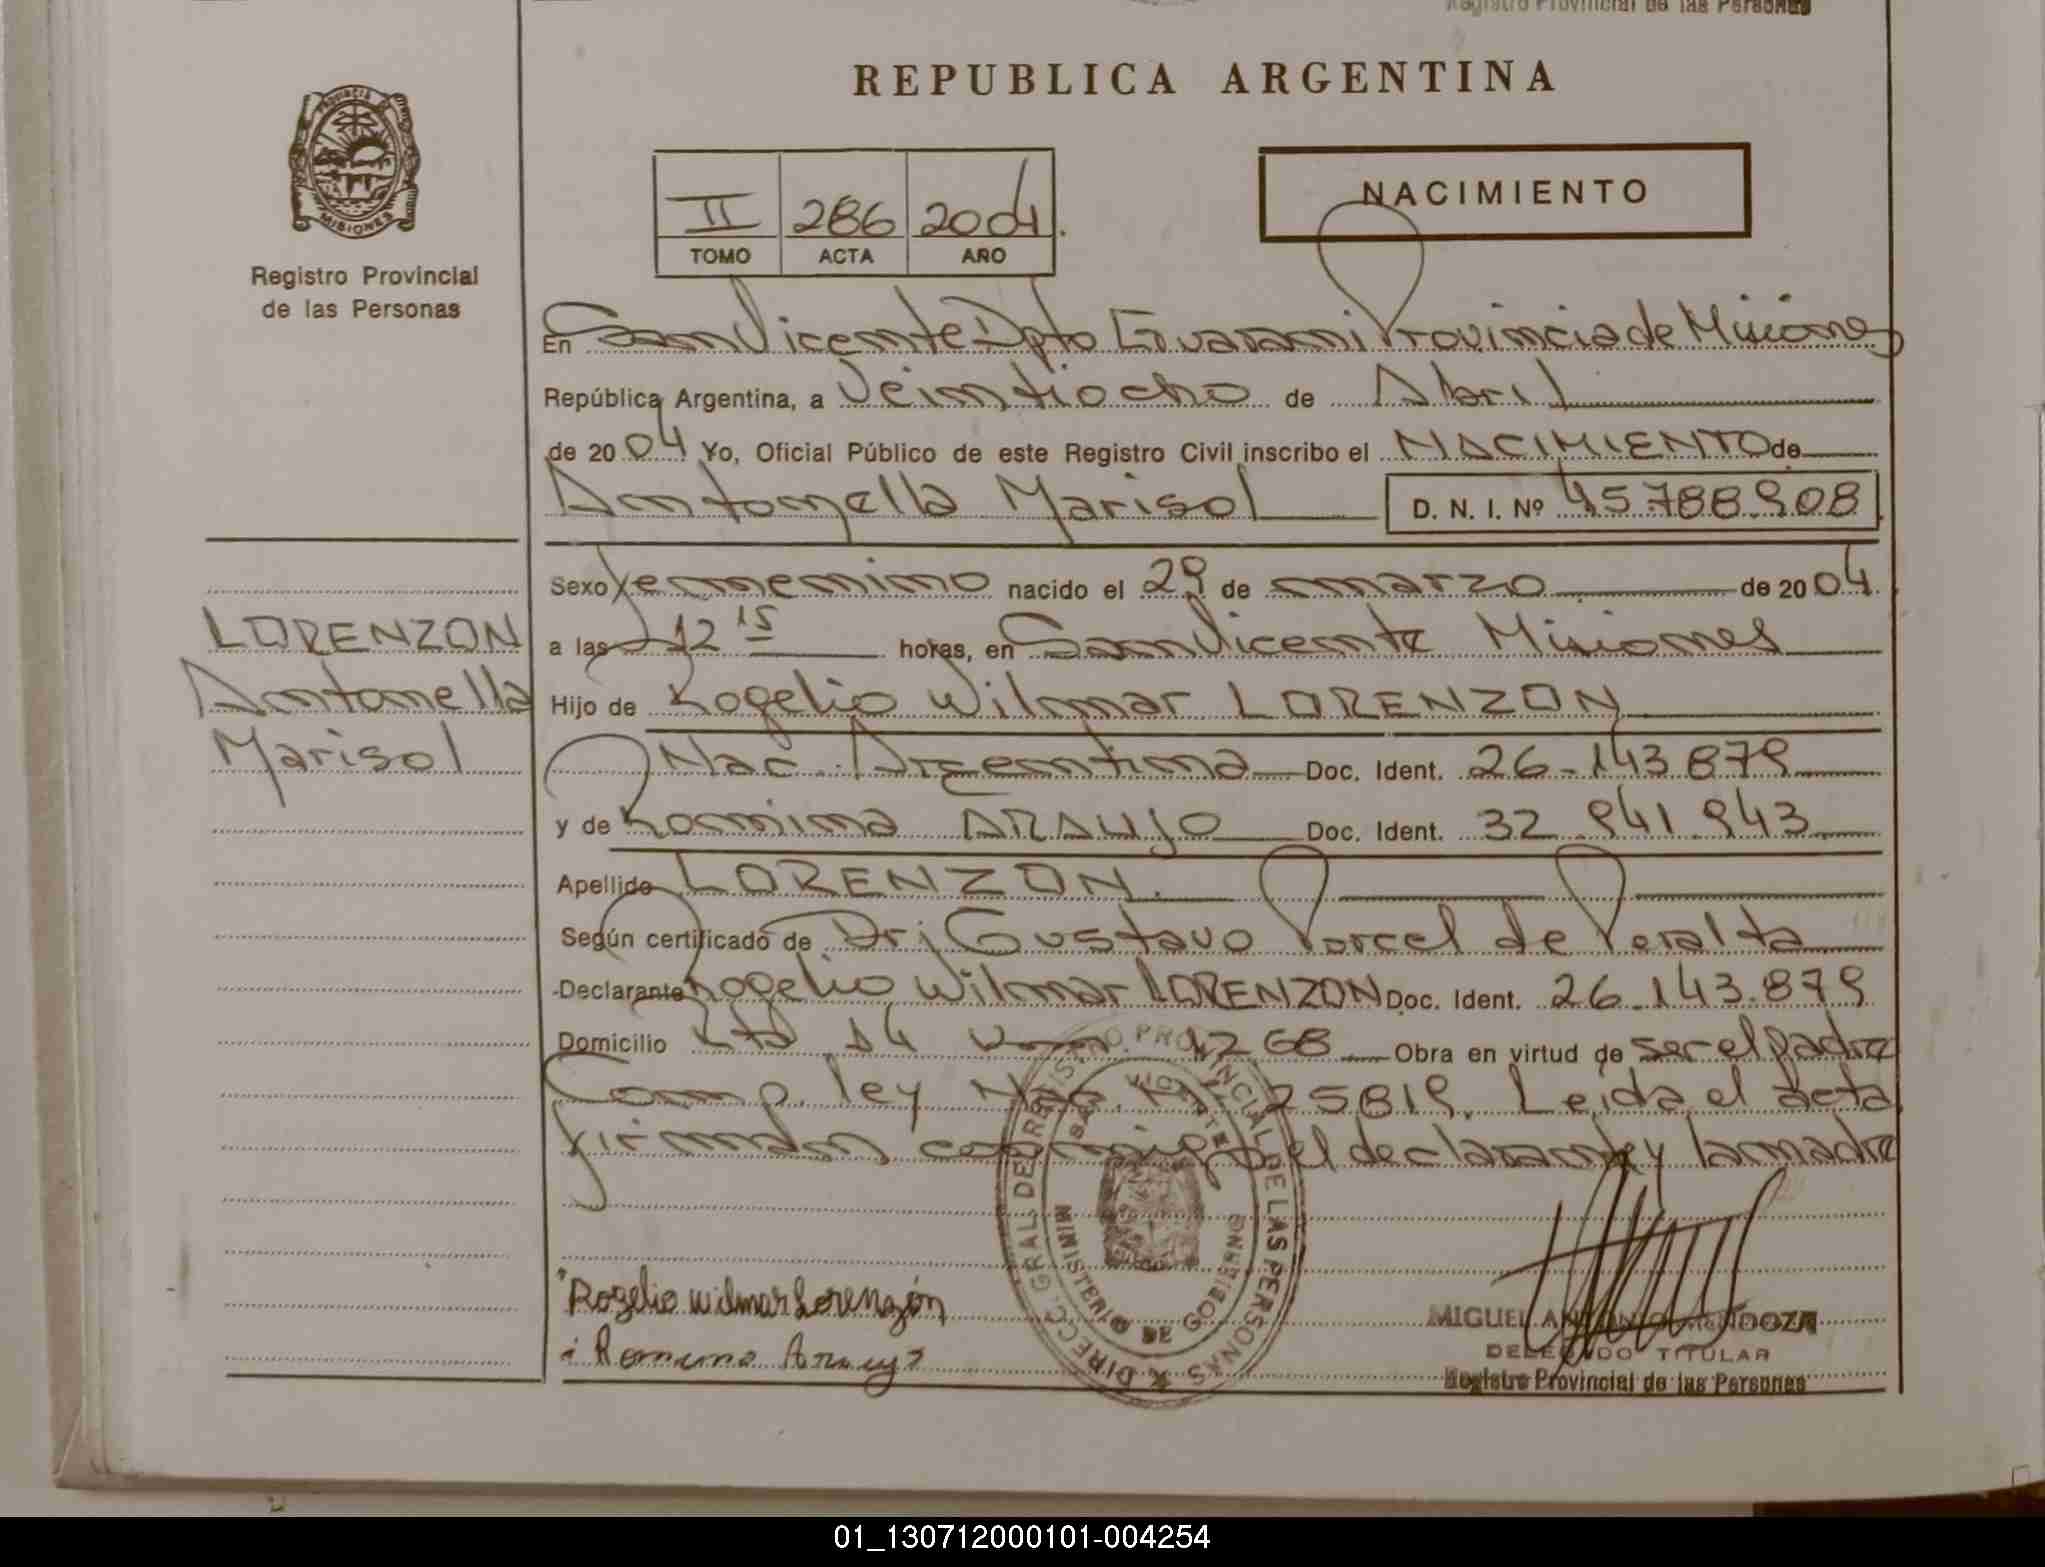 Registro Provincial de las Personas
REPUBLICA ARGENTINA
PROVINCIA DE
MISIONES
Registro Provincial
de las Personas
II 286 2004.
TOMO ACTA AÑO
NACIMIENTO
En San Vicente Dpto Guarani Provincia de Misiones
República Argentina, a Veintiocho de Abril
de 2004 Yo, Oficial Público de este Registro Civil inscribo el NACIMIENTO de
Antonella Marisol D. N. I. Nº 45.788.908
Sexo femenino nacido el 29 de marzo de 2004.
a las 12 15 horas, en San Vicente Misiones
Hijo de Rogelio Wilmar LORENZON
Nac. Argentina Doc. Ident. 26.143.879
y de Romina ARAUJO Doc. Ident. 32.941.943
Apellido LORENZON.
Según certificado de Dr; Gustavo Porcel de Peralta
Declarante Rogelio Wilmar LORENZON Doc. Ident. 26.143.879
Domicilio Rta 14 1268 Obra en virtud de ser el padre
Comp. ley Nac. Nº 25819. Leida el acta
firman conmigo el declarante y la madre
LORENZON
Antonella
Marisol
Rogelio Wilmar Lorenzón
Romina Araujo
DIRECC. GRAL. DE REGISTRO PROVINCIAL DE LAS PERSONAS
SAN VICENTE
MINISTERIO DE GOBIERNO
MIGUEL ANTONIO MENDOZA
DELEGADO TITULAR
Registro Provincial de las Personas
01_130712000101-004254